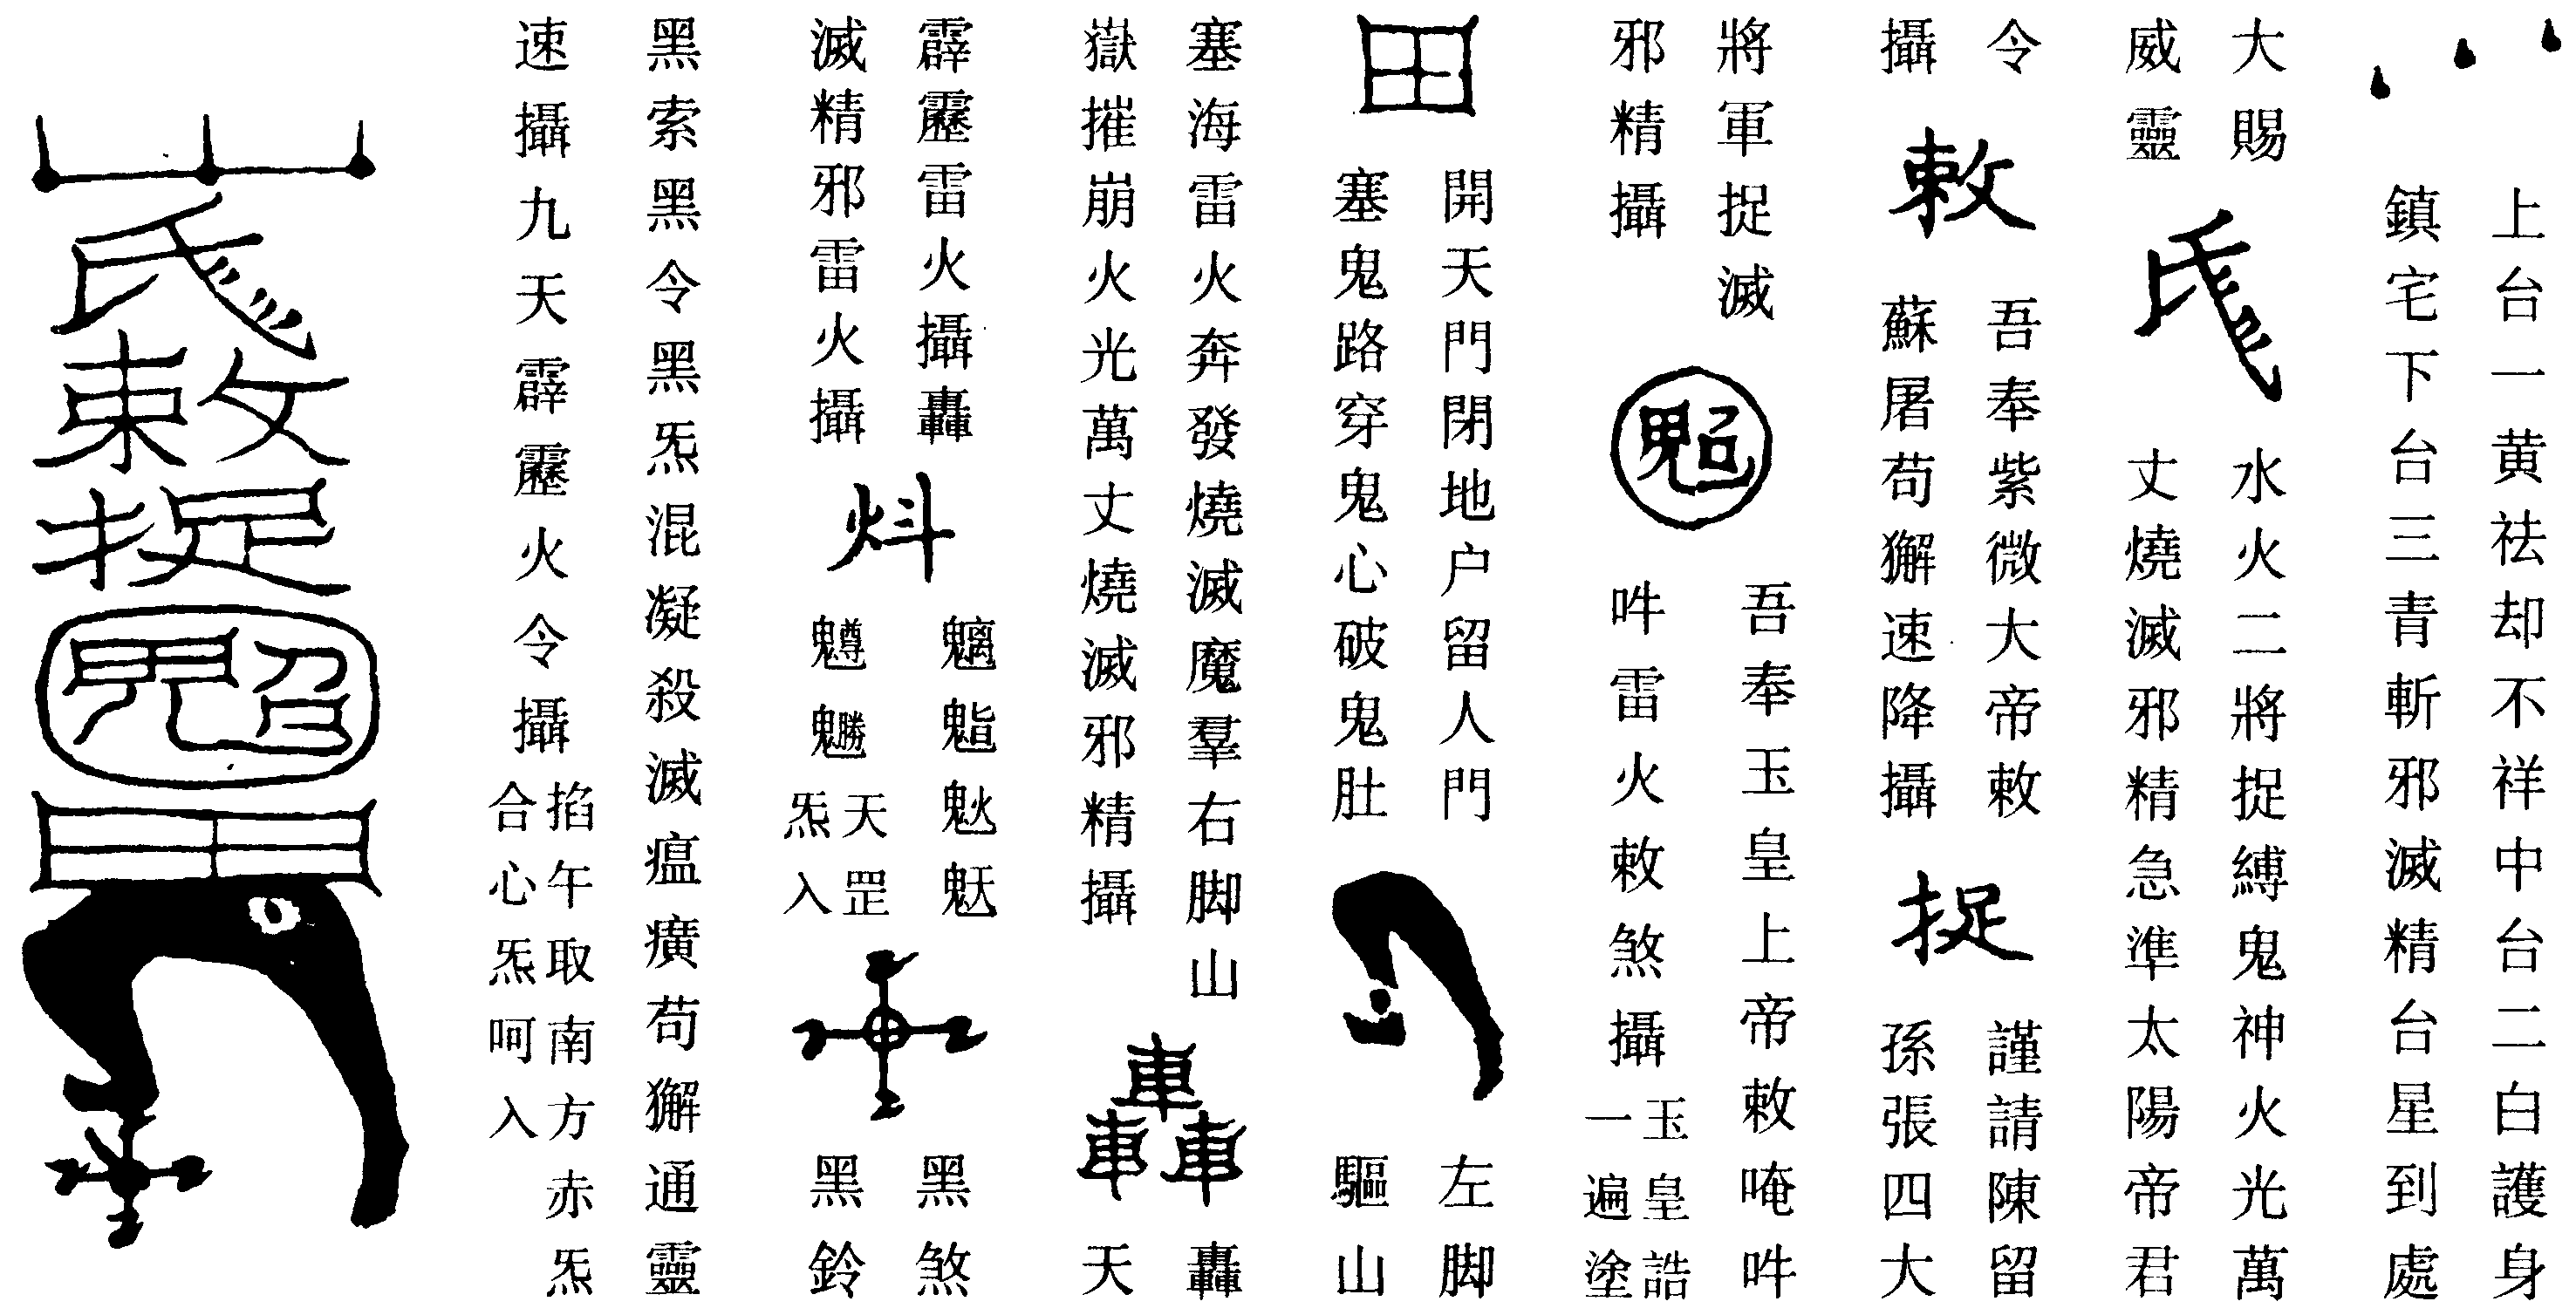 上台一黄祛却不祥中台二白護身
鎮宅下台三青斬邪滅精台星到處
大賜
威靈
水火二將捉縛鬼神火光萬
丈燒滅邪精急準太陽帝君
令
攝
敕
吾奉紫微大帝敕
蘇屠苟獬速降攝
捉
謹請陳留
孫張四大
將軍捉滅
邪精攝
吾奉玉皇上帝敕唵吽
吽雷火敕煞攝
玉皇誥
一遍塗
田
開天門閉地户留人門
塞鬼路穿鬼心破鬼肚
左脚
驅山
塞海雷火奔發燒滅魔羣右脚山
嶽摧崩火光萬丈燒滅邪精攝
轟
轟
天
霹靂雷火攝轟
滅精邪雷火攝
炓
魑
天罡
炁入
黑煞
黑鈴
黑索黑令黑炁混凝殺滅瘟癀苟獬通靈
速攝九天霹靂火令攝
掐午取南方赤炁
合心炁呵入
敕
捉